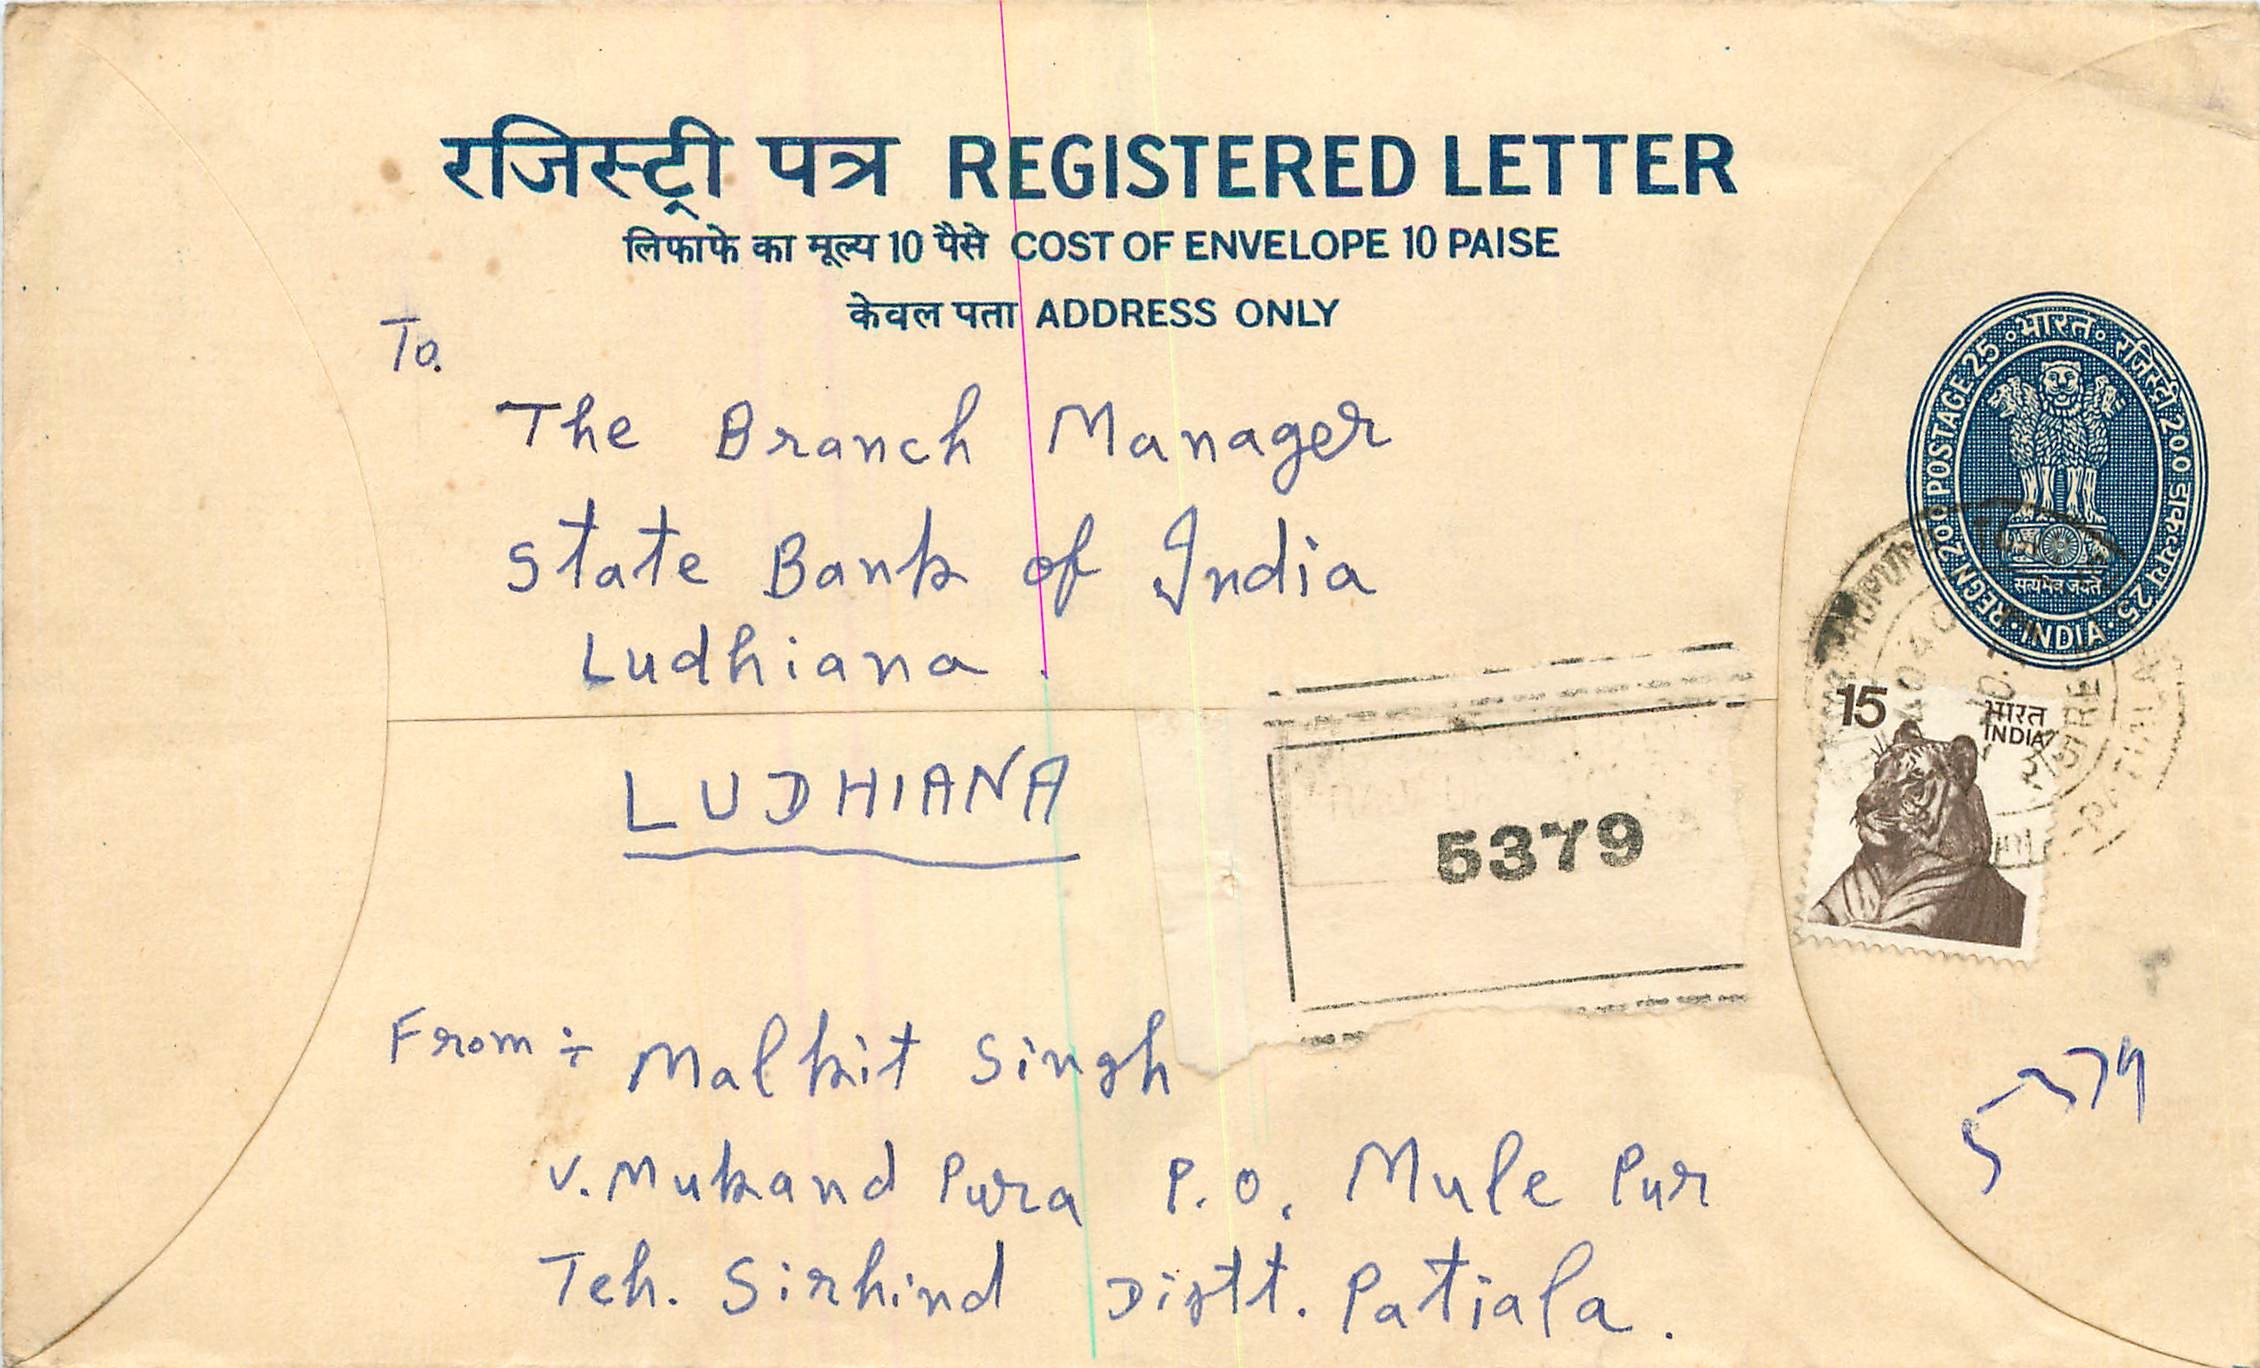 रजिस्ट्री पत्र REGISTERED LETTER
लिफाफे का मूल्य 10 पैसे COST OF ENVELOPE 10 PAISE
केवल पता ADDRESS ONLY
To.
The Branch Manager
State Bank of India
Ludhiana.
LUDHIANA
भारत रजिस्ट्री 200 डाकव्यय 25
REGN 200 POSTAGE 25
सत्यमेव जयते
INDIA
15 भारत
INDIA
5379
From ÷ Malkit Singh
V. Mukand Pura P.O. Mule Pur
Teh. Sirhind Distt. Patiala.
5379